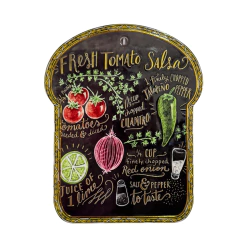 FRESH TOMATO SALSA
1 finely CHOPPED
JALAPENO PEPPER
FRESH
chopped
CILANTRO
tomatoes
seeded & diced
1/4 CUP
finely chopped
Red onion
JUICE OF
1 lime
SALT & PEPPER
to taste